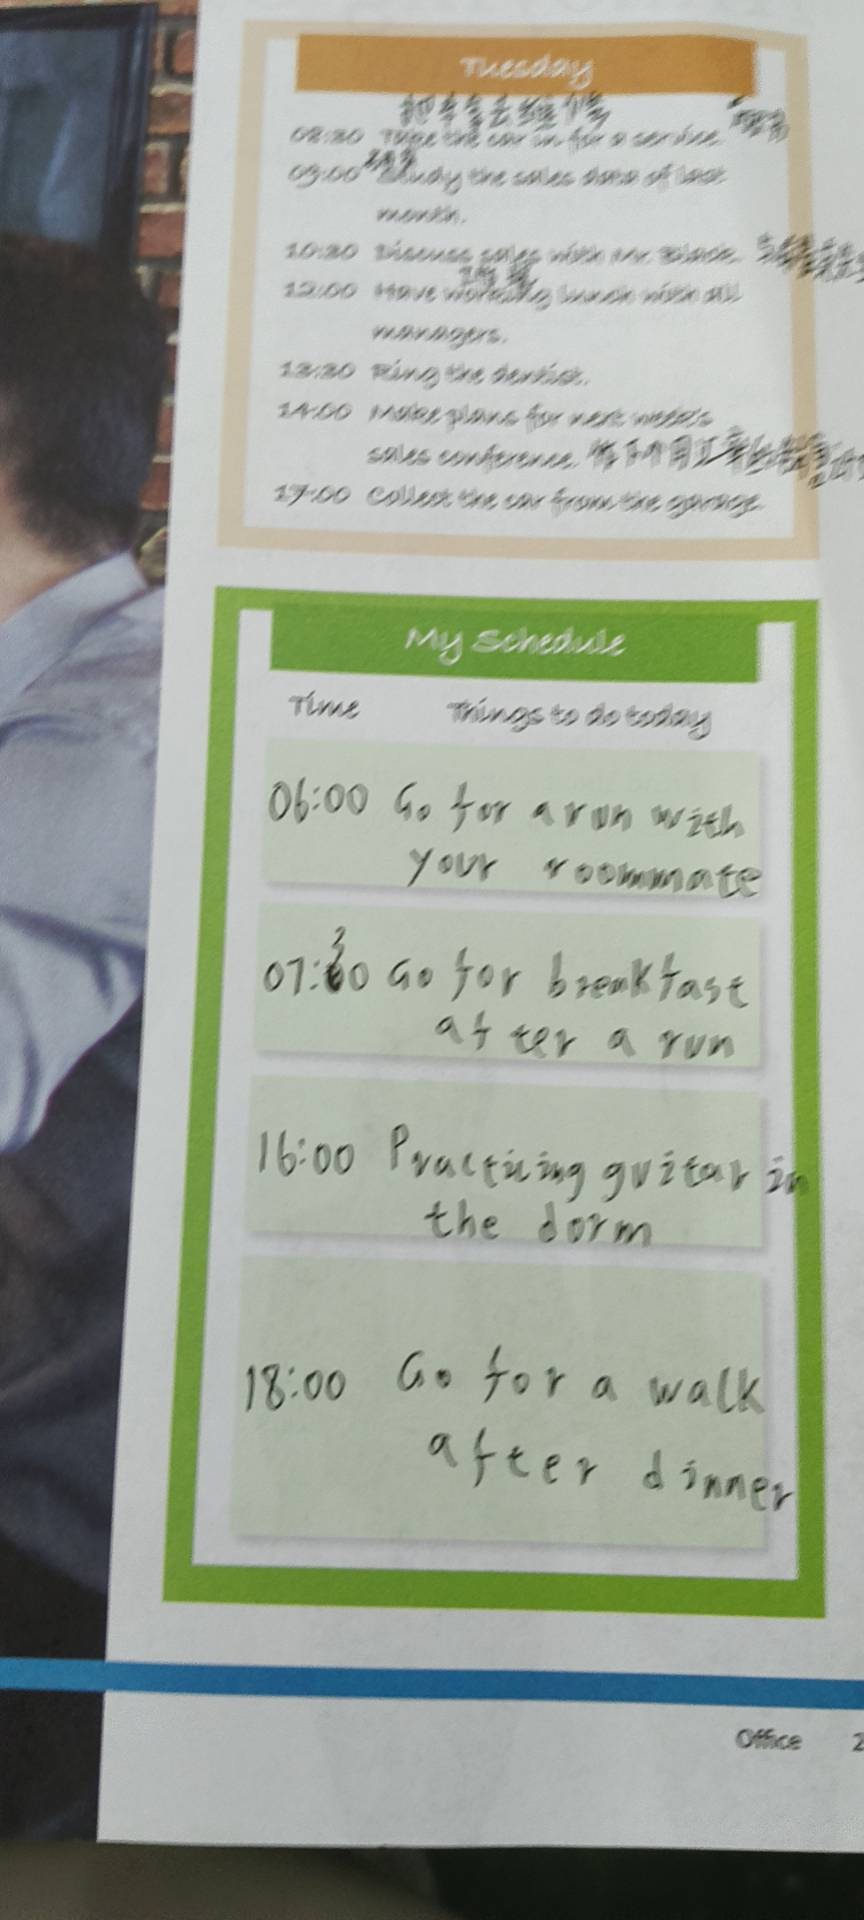 Tuesday
08:30 Take the car in for a service.
09:00 Study the sales data of last
month.
10:30 Discuss sales with Mr. Black.
12:00 Have working lunch with all
managers.
13:30 Ring the dentist.
14:00 Make plans for next week's
sales conference.
17:00 Collect the car from the garage.
My Schedule
Time Things to do today
06:00 Go for a run with
your roommate
07:30 Go for breakfast
after a run
16:00 Practicing guitar in
the dorm
18:00 Go for a walk
after dinner
Office 2